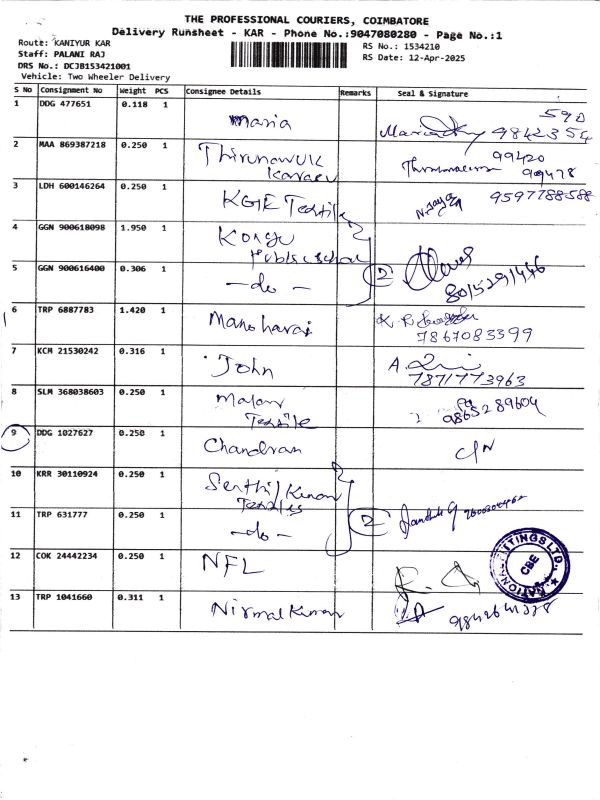 THE PROFESSIONAL COURIERS, COIMBATORE
Delivery Runsheet - KAR - Phone No.:9047080280 - Page No.:1
Route: KANIYUR KAR
Staff: PALANI RAJ
DRS No.: DCJB153421001
Vehicle: Two Wheeler Delivery
RS No.: 1534210
RS Date: 12-Apr-2025
S No Consignment No Weight PCS Consignee Details Remarks Seal & Signature
1 DDG 477651 0.118 1 maria
2 MAA 869387218 0.250 1 99420
99478
3 LDH 600146264 0.250 1 KGE Textile 9597788588
4 GGN 900618098 1.950 1 Kongu
Public school
5 GGN 900616400 0.306 1 —do— 2 8015291446
6 TRP 6887783 1.420 1 Manoharai
7867083399
7 KCM 21530242 0.316 1 John
7871773963
8 SLM 368038603 0.250 1
Textile 9865289604
9 DDG 1027627 0.250 1 Chandran
10 KRR 30110924 0.250 1 Senthil Kumar
Textiles
11 TRP 631777 0.250 1 —do— 2
12 COK 24442234 0.250 1 NFL
CBE
13 TRP 1041660 0.311 1 Nirmal Kumar